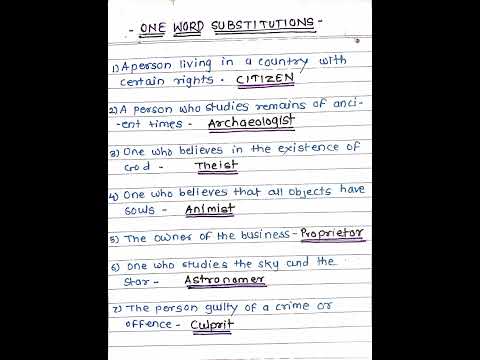 - ONE WORD SUBSTITUTIONS -
1) A person living in a country with
certain rights - CITIZEN
2) A person who studies remains of anci-
-ent times - Archaeologist
3) One who believes in the existence of
God - Theist
4) One who believes that all objects have
souls - Animist
5) The owner of the business - Proprietor
6) One who studies the sky and the
star - Astronomer
7) The person guilty of a crime or
offence - Culprit